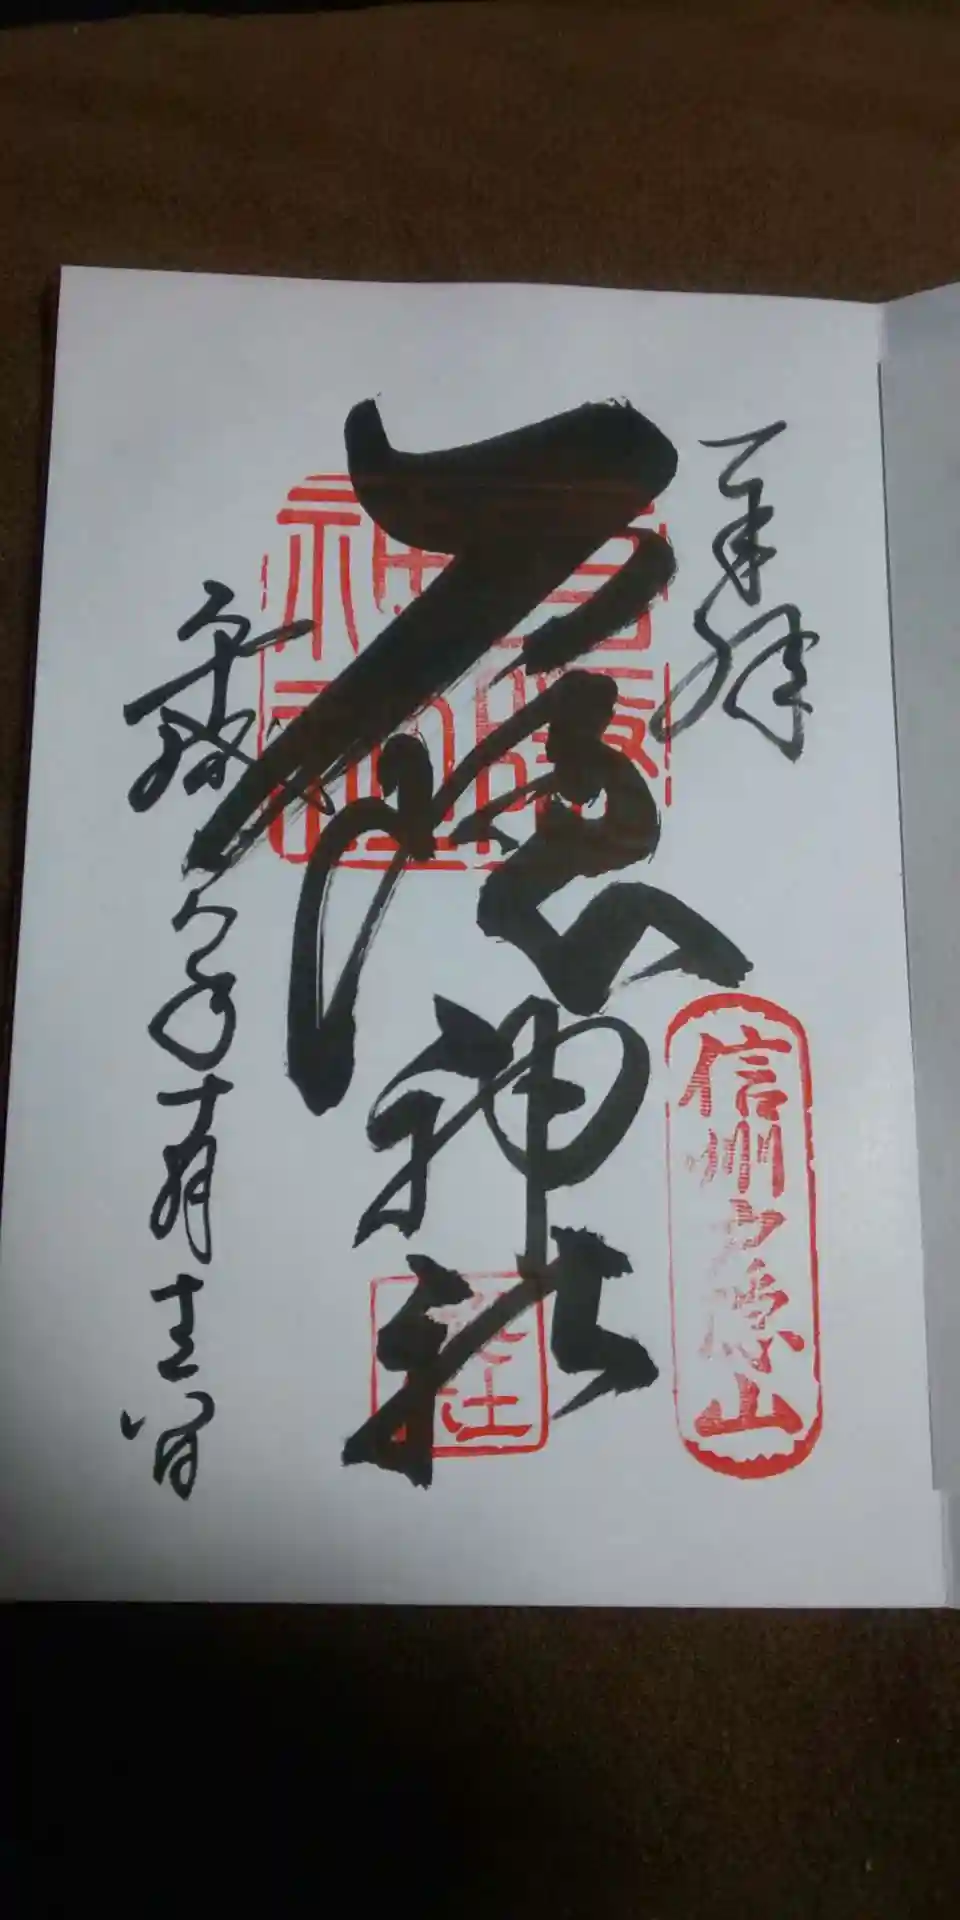 奉拝
戸隠神社
平成 年十月 日
戸隠神社
信州戸隠山
奥社